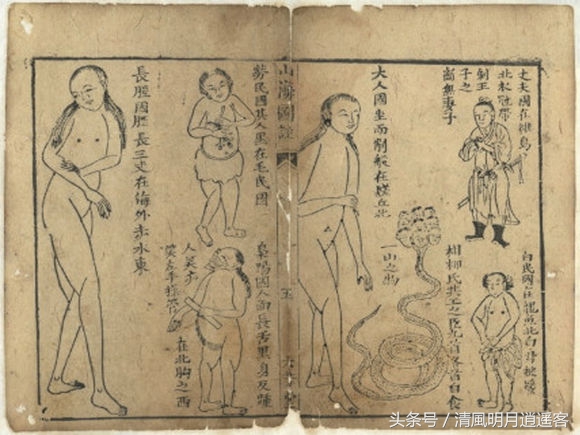 丈夫國在維鳥
北衣冠帶
劍王
子之
無妻子
白民國在龍魚北白身披髮
相柳氏共工之臣九首 首自食
一山之物
大人國坐而削船在 丘北
山海圖註
五
勞民國其人黑在毛民國
梟陽國人面長舌黑身反踵
人笑亦
笑左手操管
在北朐之西
長脛國脛長三丈在海外赤水東
头条号 / 清風明月逍遥客